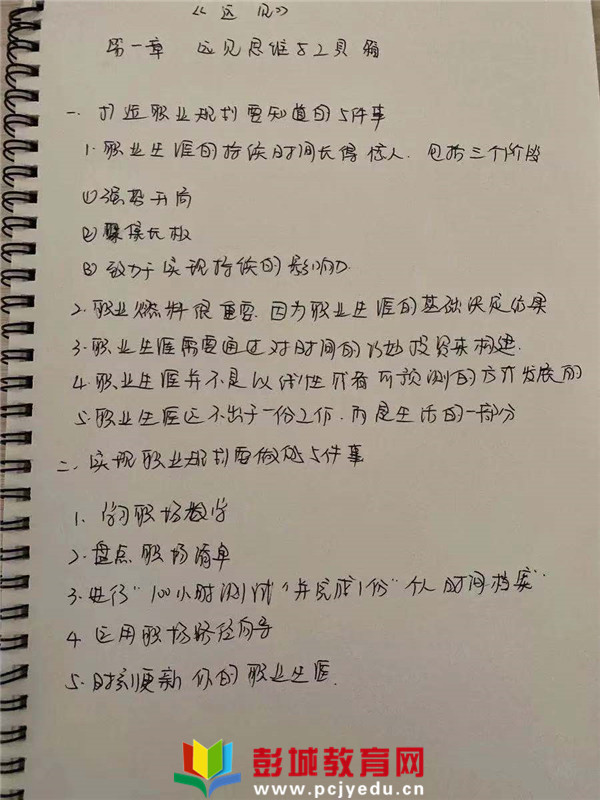 《远见》
第一章 远见思维与工具箱
一. 打造职业规划要知道的5件事
1. 职业生涯的持续时间长得惊人. 包括三个阶段
①强势开局
②聚焦长板
③致力于实现持续的影响力
2. 职业燃料很重要. 因为职业生涯的基础决定结果
3. 职业生涯需要通过对时间的巧妙投资来构建.
4. 职业生涯并不是以线性或者可预测的方式发展的
5. 职业生涯远不止于一份工作. 而是生活的一部分
二. 实现职业规划要做的5件事
1. 学习职场数学
2. 盘点职场清单
3. 进行"100小时测试"并完成1份"个人时间档案"
4. 运用职场路径向导
5. 时刻更新你的职业生涯.
彭城教育网
www.pcjyedu.cn